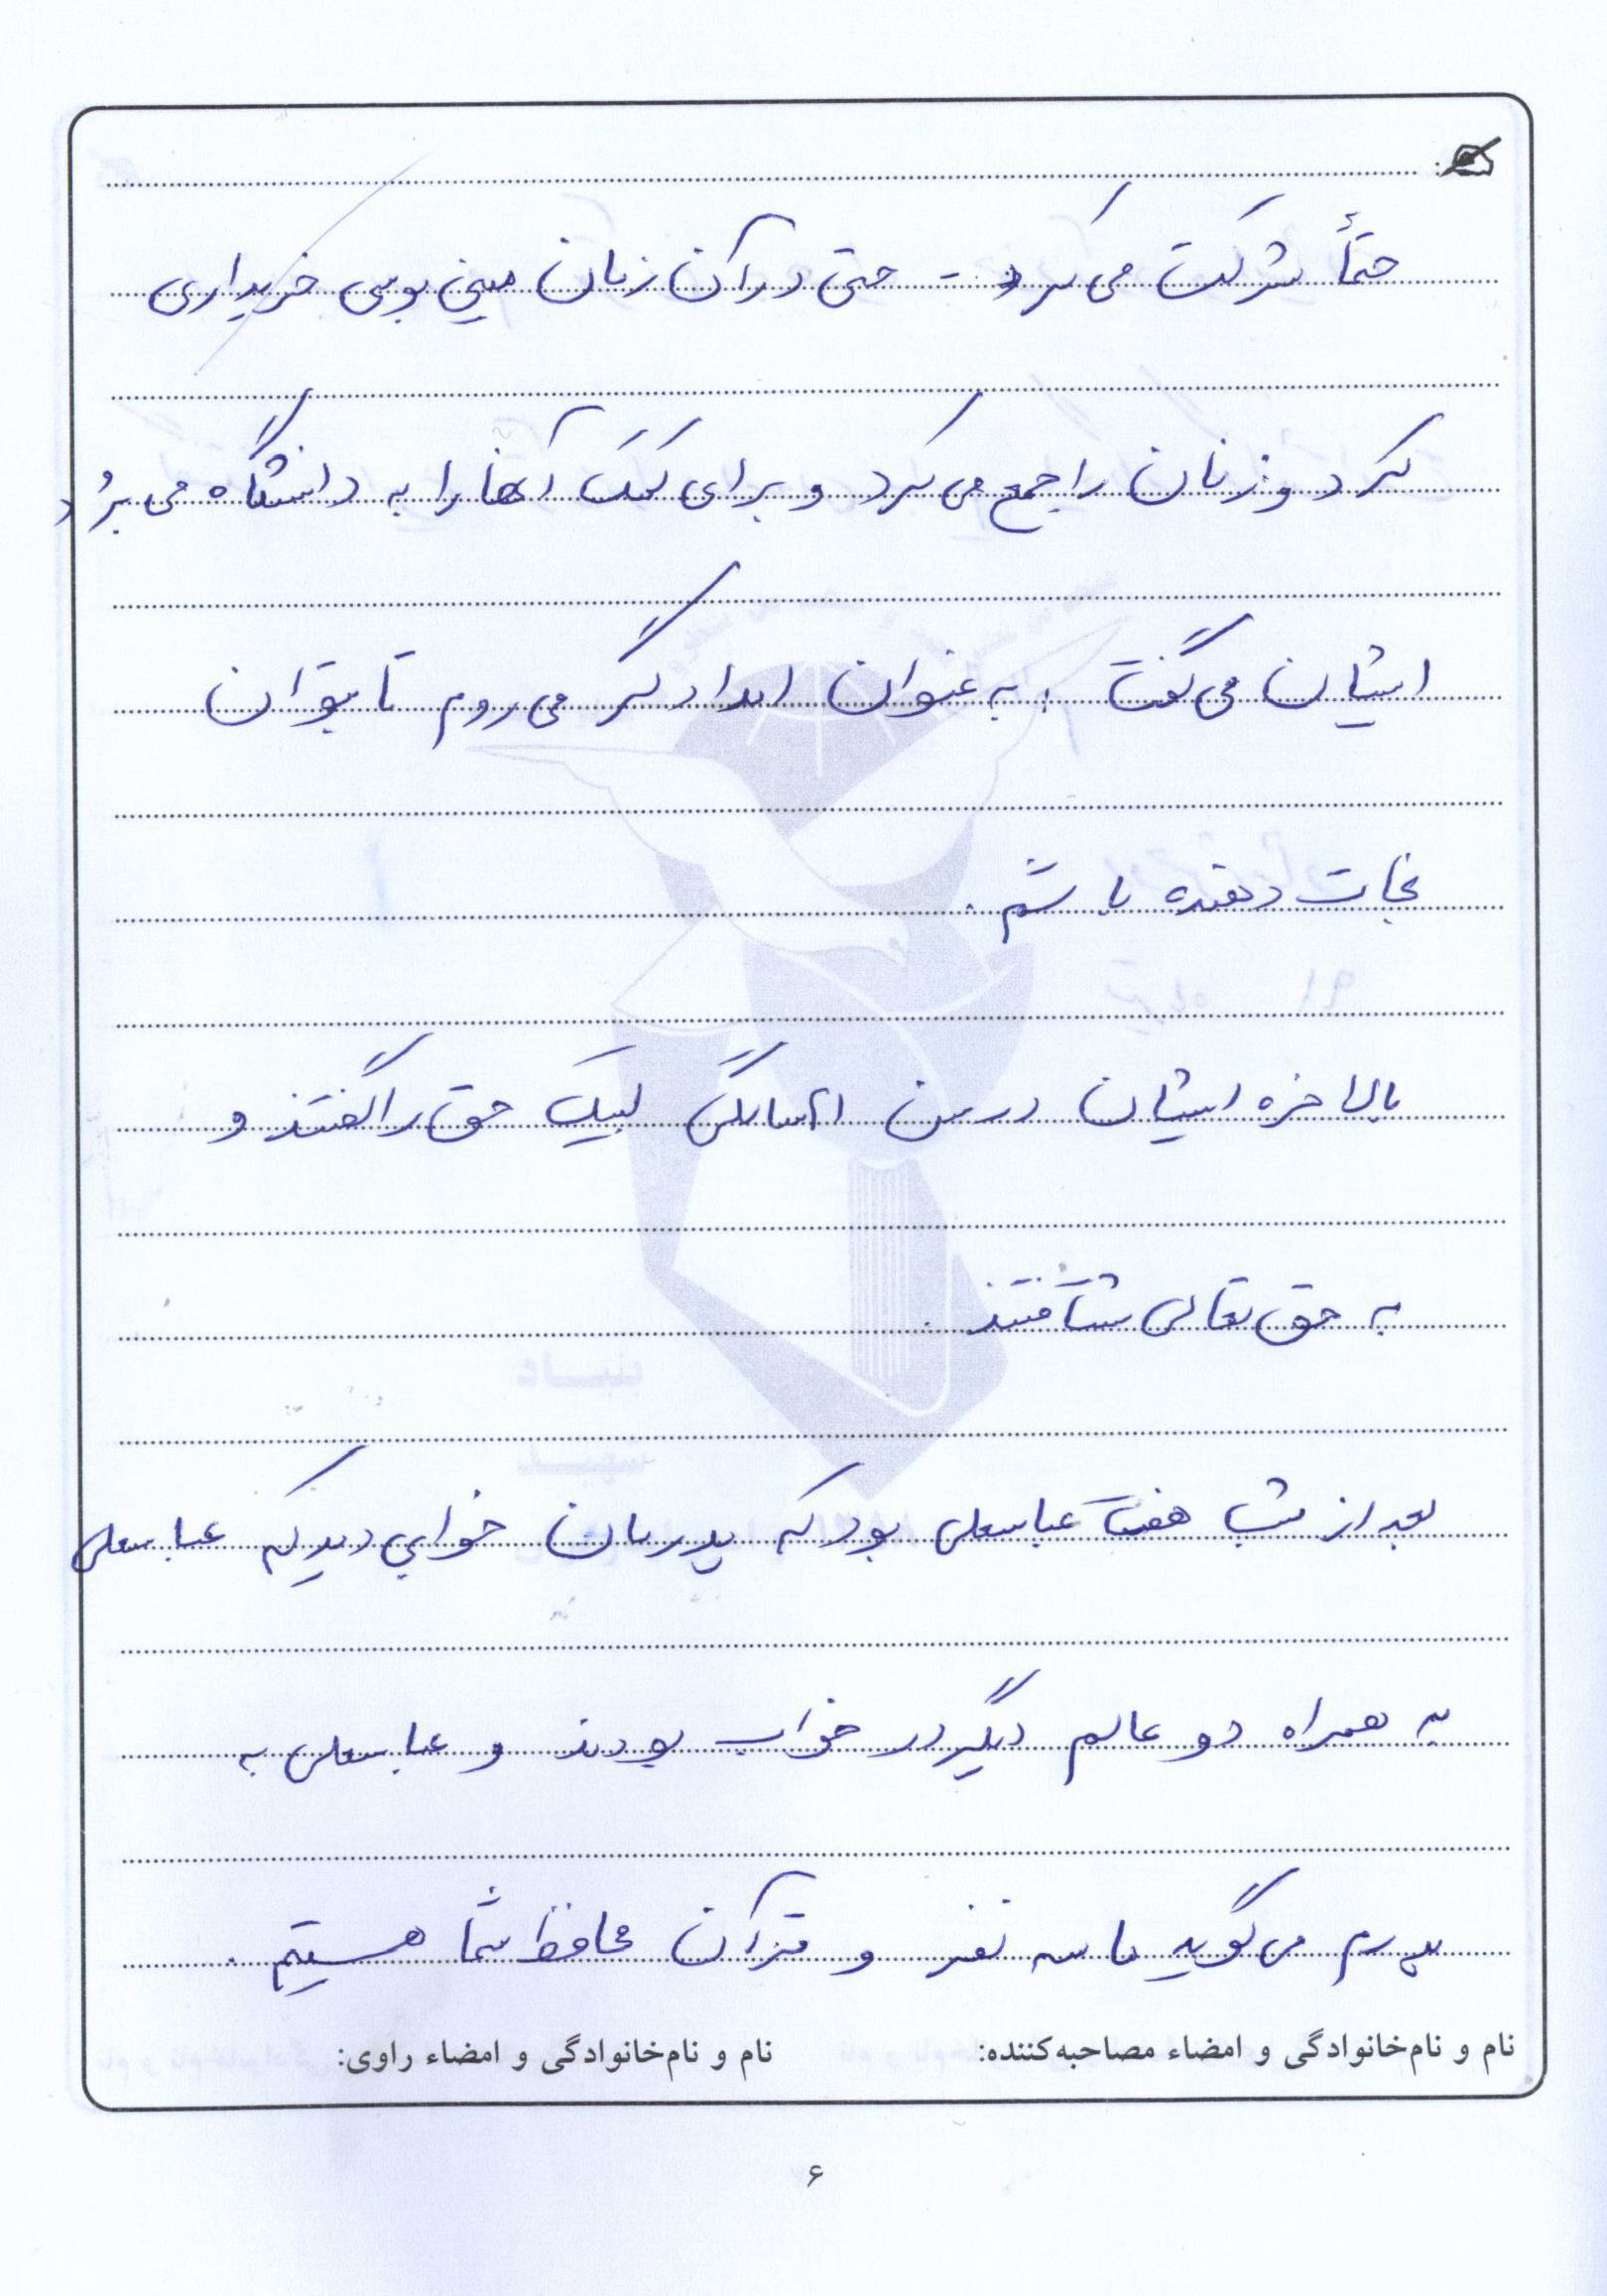 حتماً شرکت می‌کرد - حتی در آن زمان مینی بوسی خریداری
کرد و زنان را جمع می‌کرد و برای کمک آنها را به دانشگاه می‌بُرد
ایشان می‌گفت : به عنوان امدادگر می‌روم تا بتوان
نجات دهنده باشم .
بالاخره ایشان در سن سالگی لبیک حق را گفتند و
به حق تعالی شتافتند .
بعد از شب هفت عباسعلی بود که پدرمان خوابی دید که عباسعلی
به همراه دو عالم دیگر در خواب بودند و عباسعلی به
پدرم می‌گوید ما سه نفر و قرآن محافظ شما هستیم .
نام و نام‌خانوادگی و امضاء مصاحبه‌کننده: نام و نام‌خانوادگی و امضاء راوی:
۶